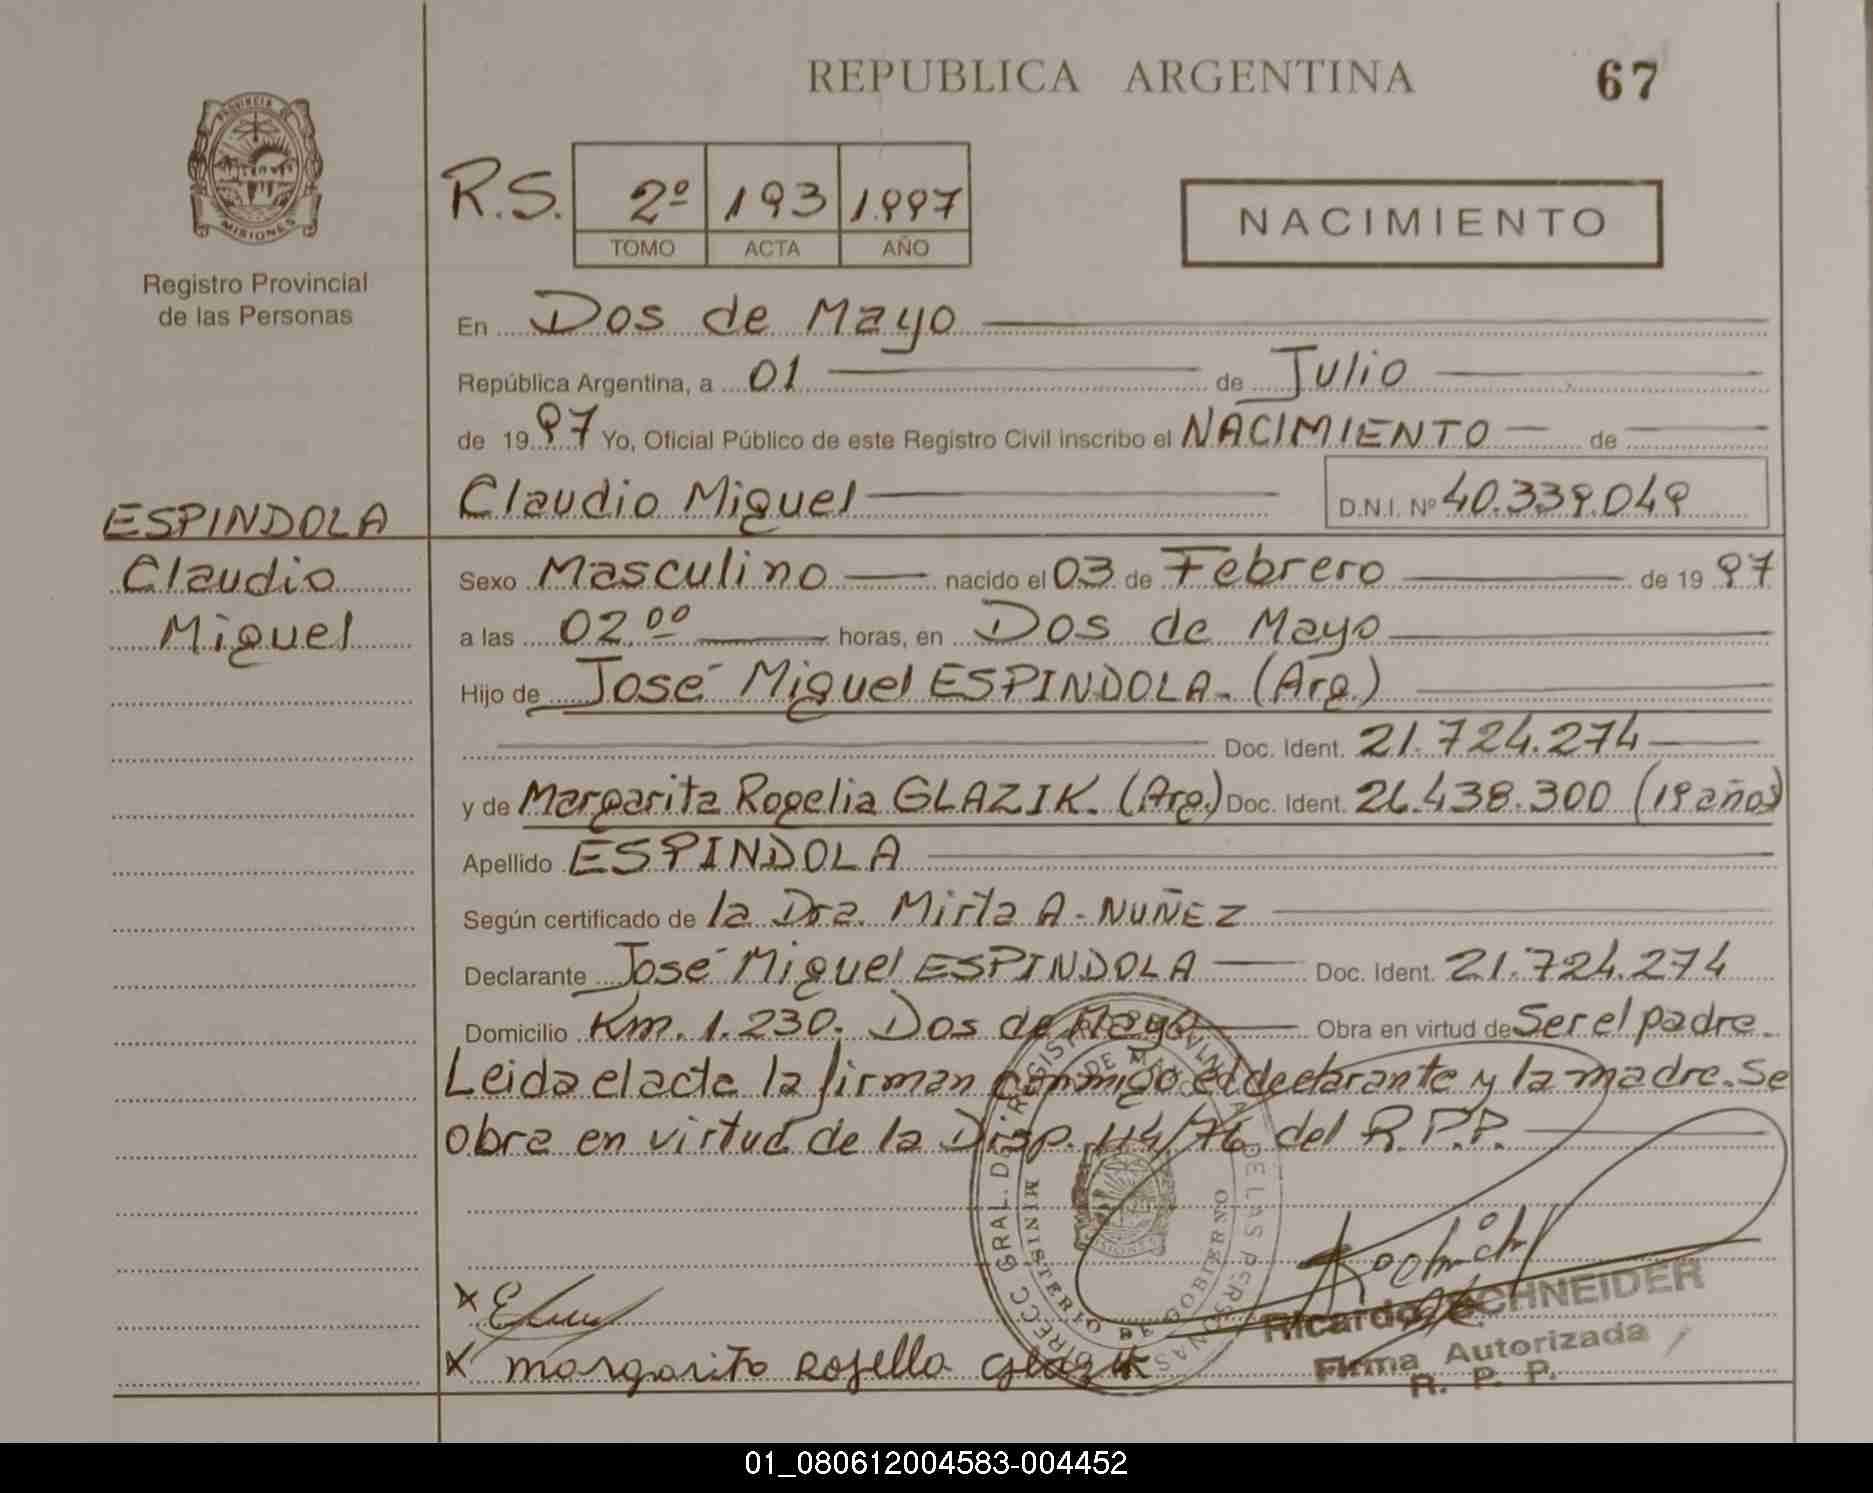 REPUBLICA ARGENTINA
67
PROVINCIA
MISIONES
Registro Provincial
de las Personas
R.S.
2º 193 1997
TOMO ACTA AÑO
NACIMIENTO
En Dos de Mayo
República Argentina, a 01 de Julio
de 1997 Yo, Oficial Público de este Registro Civil inscribo el NACIMIENTO de
Claudio Miguel D.N.I. Nº 40.339.049
ESPINDOLA
Claudio
Miguel
Sexo Masculino nacido el 03 de Febrero de 1997
a las 02.00 horas, en Dos de Mayo
Hijo de José Miguel ESPINDOLA. (Arg.)
Doc. Ident. 21.724.274
y de Margarita Rogelia GLAZIK. (Arg.) Doc. Ident. 26.438.300 (19 años)
Apellido ESPINDOLA
Según certificado de la Dra. Mirta A. NUÑEZ
Declarante José Miguel ESPINDOLA Doc. Ident. 21.724.274
Domicilio Km. 1.230. Dos de Mayo Obra en virtud de Ser el padre.
Leida el acta la firman conmigo el declarante y la madre. Se
obra en virtud de la Disp. 114/76 del R.P.P.
DIRECC GRAL. DEL REGISTRO PROVINCIAL DE LAS PERSONAS
MINISTERIO DE GOBIERNO
MISIONES
x
x margarita Rojella Glazik
Ricardo SCHNEIDER
Firma Autorizada
R. P. P.
01_080612004583-004452